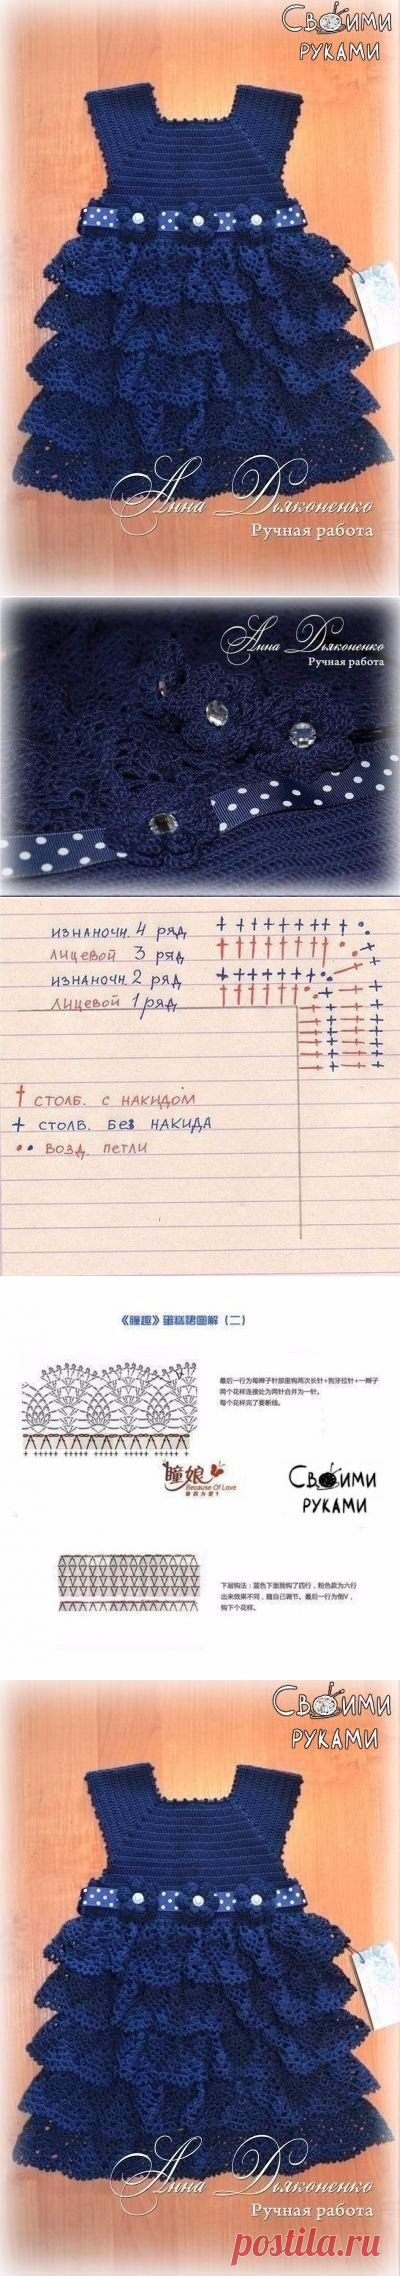 Своими
руками
Анна Дьяконенко
Ручная работа
Анна Дьяконенко
Ручная работа
изнаночн. 4 ряд
лицевой 3 ряд
изнаночн. 2 ряд
лицевой 1 ряд
столб. с накидом
столб. без накида
возд. петли
《瞳趣》蛋糕裙圖解（二）
最后一行为每辫子针那里钩两次长针+狗牙拉针+一辫子
两个花样连接处为两针合并为一针。
每个花样完了要断线。
瞳娘
Because Of Love
Своими
руками
下层钩法：蓝色下面我钩了四行，粉色款为六行
出来效果不同，随自己调节。最后一行为倒V，
钩下个花样。
Своими
руками
Анна Дьяконенко
Ручная работа
postila.ru